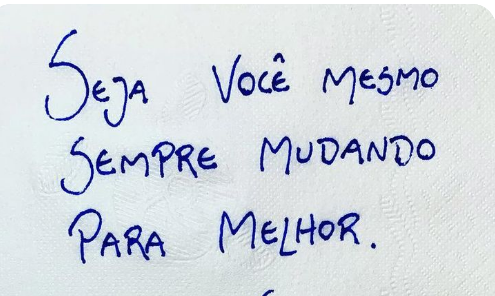 SEJA VOCÊ MESMO
SEMPRE MUDANDO
PARA MELHOR.